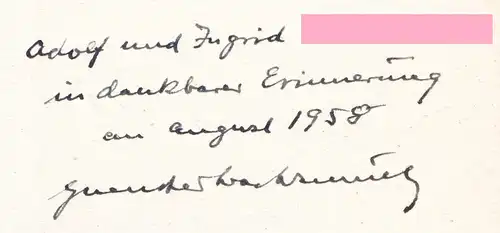 Adolf und Ingrid
in dankbarer Erinnerung
an august 1958
Guenther Wachsmuth